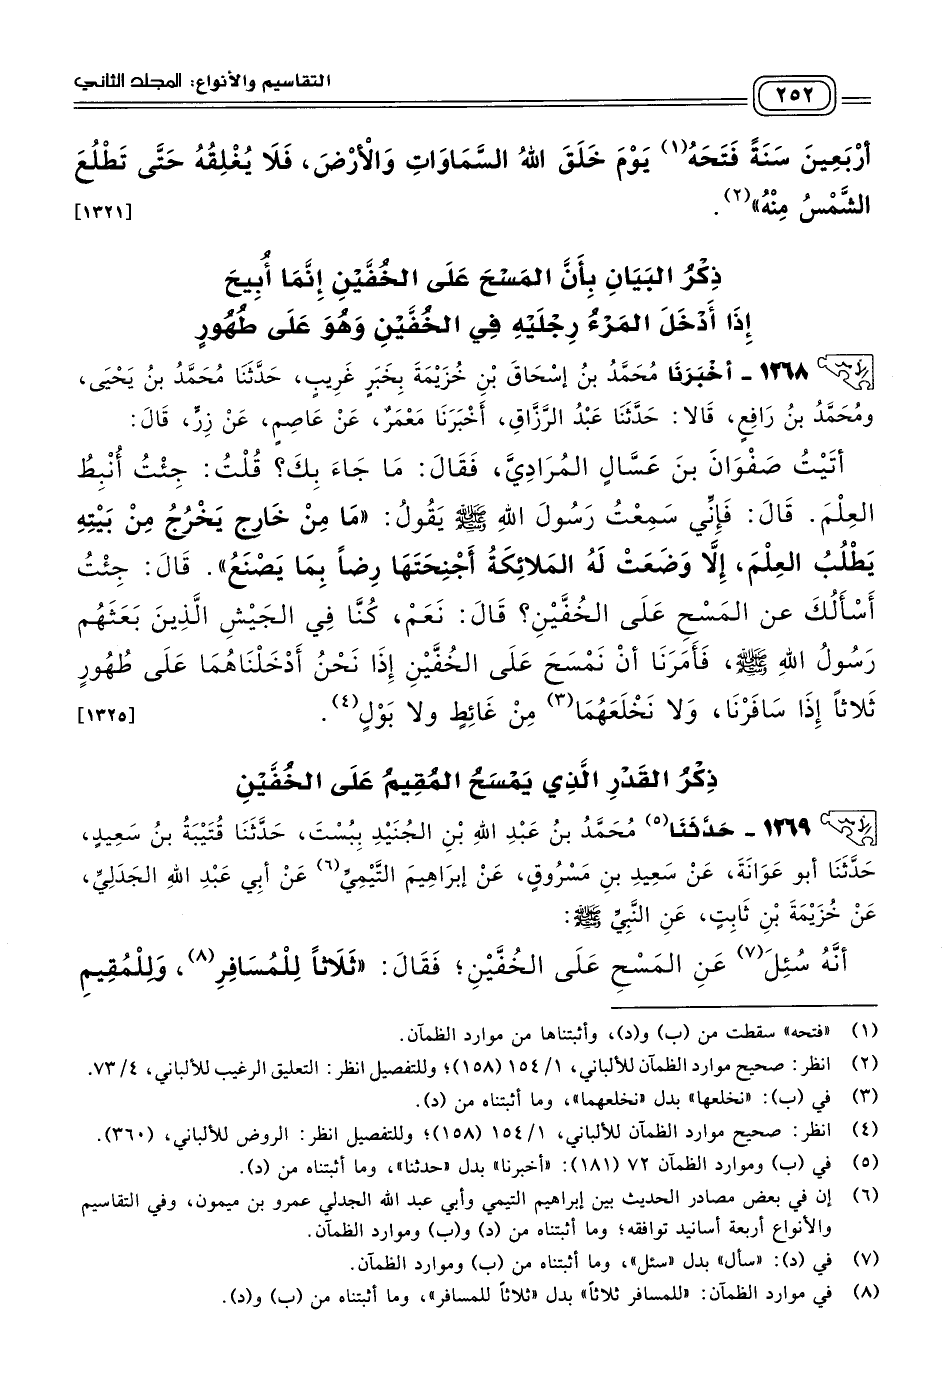 التقاسيم والأنواع: المجلد الثاني
٢٥٢
أَرْبَعِينَ سَنَةً فَتَحَهُ(١) يَوْمَ خَلَقَ اللهُ السَّمَاوَاتِ وَالْأَرْضَ، فَلَا يُغْلِقُهُ حَتَّى تَطْلُعَ
الشَّمْسُ مِنْهُ»(٢). [١٣٢١]
ذِكْرُ البَيَانِ بِأَنَّ المَسْحَ عَلَى الخُفَّيْنِ إِنَّمَا أُبِيحَ
إِذَا أَدْخَلَ المَرْءُ رِجْلَيْهِ فِي الخُفَّيْنِ وَهُوَ عَلَى طُهُورٍ
١٣٦٨ - أَخْبَرَنَا مُحَمَّدُ بنُ إِسْحَاقَ بْنِ خُزَيْمَةَ بِخَبَرٍ غَرِيبٍ، حَدَّثَنَا مُحَمَّدُ بنُ يَحْيَى،
ومُحَمَّدُ بنُ رَافِعٍ، قَالا: حَدَّثَنَا عَبْدُ الرَّزَّاقِ، أَخْبَرَنَا مَعْمَرٌ، عَنْ عَاصِمٍ، عَنْ زِرٍّ، قَالَ:
أَتَيْتُ صَفْوَانَ بنَ عَسَّالٍ المُرَادِيَّ، فَقَالَ: مَا جَاءَ بِكَ؟ قُلْتُ: جِئْتُ أُنْبِطُ
العِلْمَ. قَالَ: فَإِنِّي سَمِعْتُ رَسُولَ اللهِ ﷺ يَقُولُ: «مَا مِنْ خَارِجٍ يَخْرُجُ مِنْ بَيْتِهِ
يَطْلُبُ العِلْمَ، إِلَّا وَضَعَتْ لَهُ المَلائِكَةُ أَجْنِحَتَهَا رِضاً بِمَا يَصْنَعُ». قَالَ: جِئْتُ
أَسْأَلُكَ عن المَسْحِ عَلَى الخُفَّيْنِ؟ قَالَ: نَعَمْ، كُنَّا فِي الجَيْشِ الَّذِينَ بَعَثَهُم
رَسُولُ اللهِ ﷺ، فَأَمَرَنَا أنْ نَمْسَحَ عَلَى الخُفَّيْنِ إِذَا نَحْنُ أَدْخَلْنَاهُمَا عَلَى طُهُورٍ
ثَلاثاً إِذَا سَافَرْنَا، وَلَا نَخْلَعَهُمَا(٣) مِنْ غَائِطٍ ولا بَوْلٍ(٤). [١٣٢٥]
ذِكْرُ القَدْرِ الَّذِي يَمْسَحُ المُقِيمُ عَلَى الخُفَّيْنِ
١٣٦٩ - حَدَّثَنَا(٥) مُحَمَّدُ بنُ عَبْدِ اللهِ بْنِ الجُنَيْدِ بِبُسْتَ، حَدَّثَنَا قُتَيْبَةُ بنُ سَعِيدٍ،
حَدَّثَنَا أبو عَوَانَةَ، عَنْ سَعِيدِ بنِ مَسْرُوقٍ، عَنْ إبرَاهِيمَ التَّيْمِيِّ(٦) عَنْ أبي عَبْدِ اللهِ الجَدَلِيِّ،
عَنْ خُزَيْمَةَ بْنِ ثَابِتٍ، عَنِ النَّبِيِّ ﷺ:
أنَّهُ سُئِلَ(٧) عَنِ المَسْحِ عَلَى الخُفَّيْنِ؛ فَقَالَ: «ثَلَاثاً لِلْمُسَافِرِ(٨)، وَلِلْمُقِيمِ
(١) «فتحه» سقطت من (ب) و(د)، وأثبتناها من موارد الظمآن.
(٢) انظر: صحيح موارد الظمآن للألباني، ١/ ١٥٤ (١٥٨)؛ وللتفصيل انظر: التعليق الرغيب للألباني، ٤/ ٧٣.
(٣) في (ب): «نخلعها» بدل «نخلعهما»، وما أثبتناه من (د).
(٤) انظر: صحيح موارد الظمآن للألباني، ١/ ١٥٤ (١٥٨)؛ وللتفصيل انظر: الروض للألباني، (٣٦٠).
(٥) في (ب) وموارد الظمآن ٧٢ (١٨١): «أخبرنا» بدل «حدثنا»، وما أثبتناه من (د).
(٦) إن في بعض مصادر الحديث بين إبراهيم التيمي وأبي عبد الله الجدلي عمرو بن ميمون، وفي التقاسيم
والأنواع أربعة أسانيد توافقه؛ وما أثبتناه من (د) و(ب) وموارد الظمآن.
(٧) في (د): «سأل» بدل «سئل»، وما أثبتناه من (ب) وموارد الظمآن.
(٨) في موارد الظمآن: «للمسافر ثلاثاً» بدل «ثلاثاً للمسافر»، وما أثبتناه من (ب) و(د).